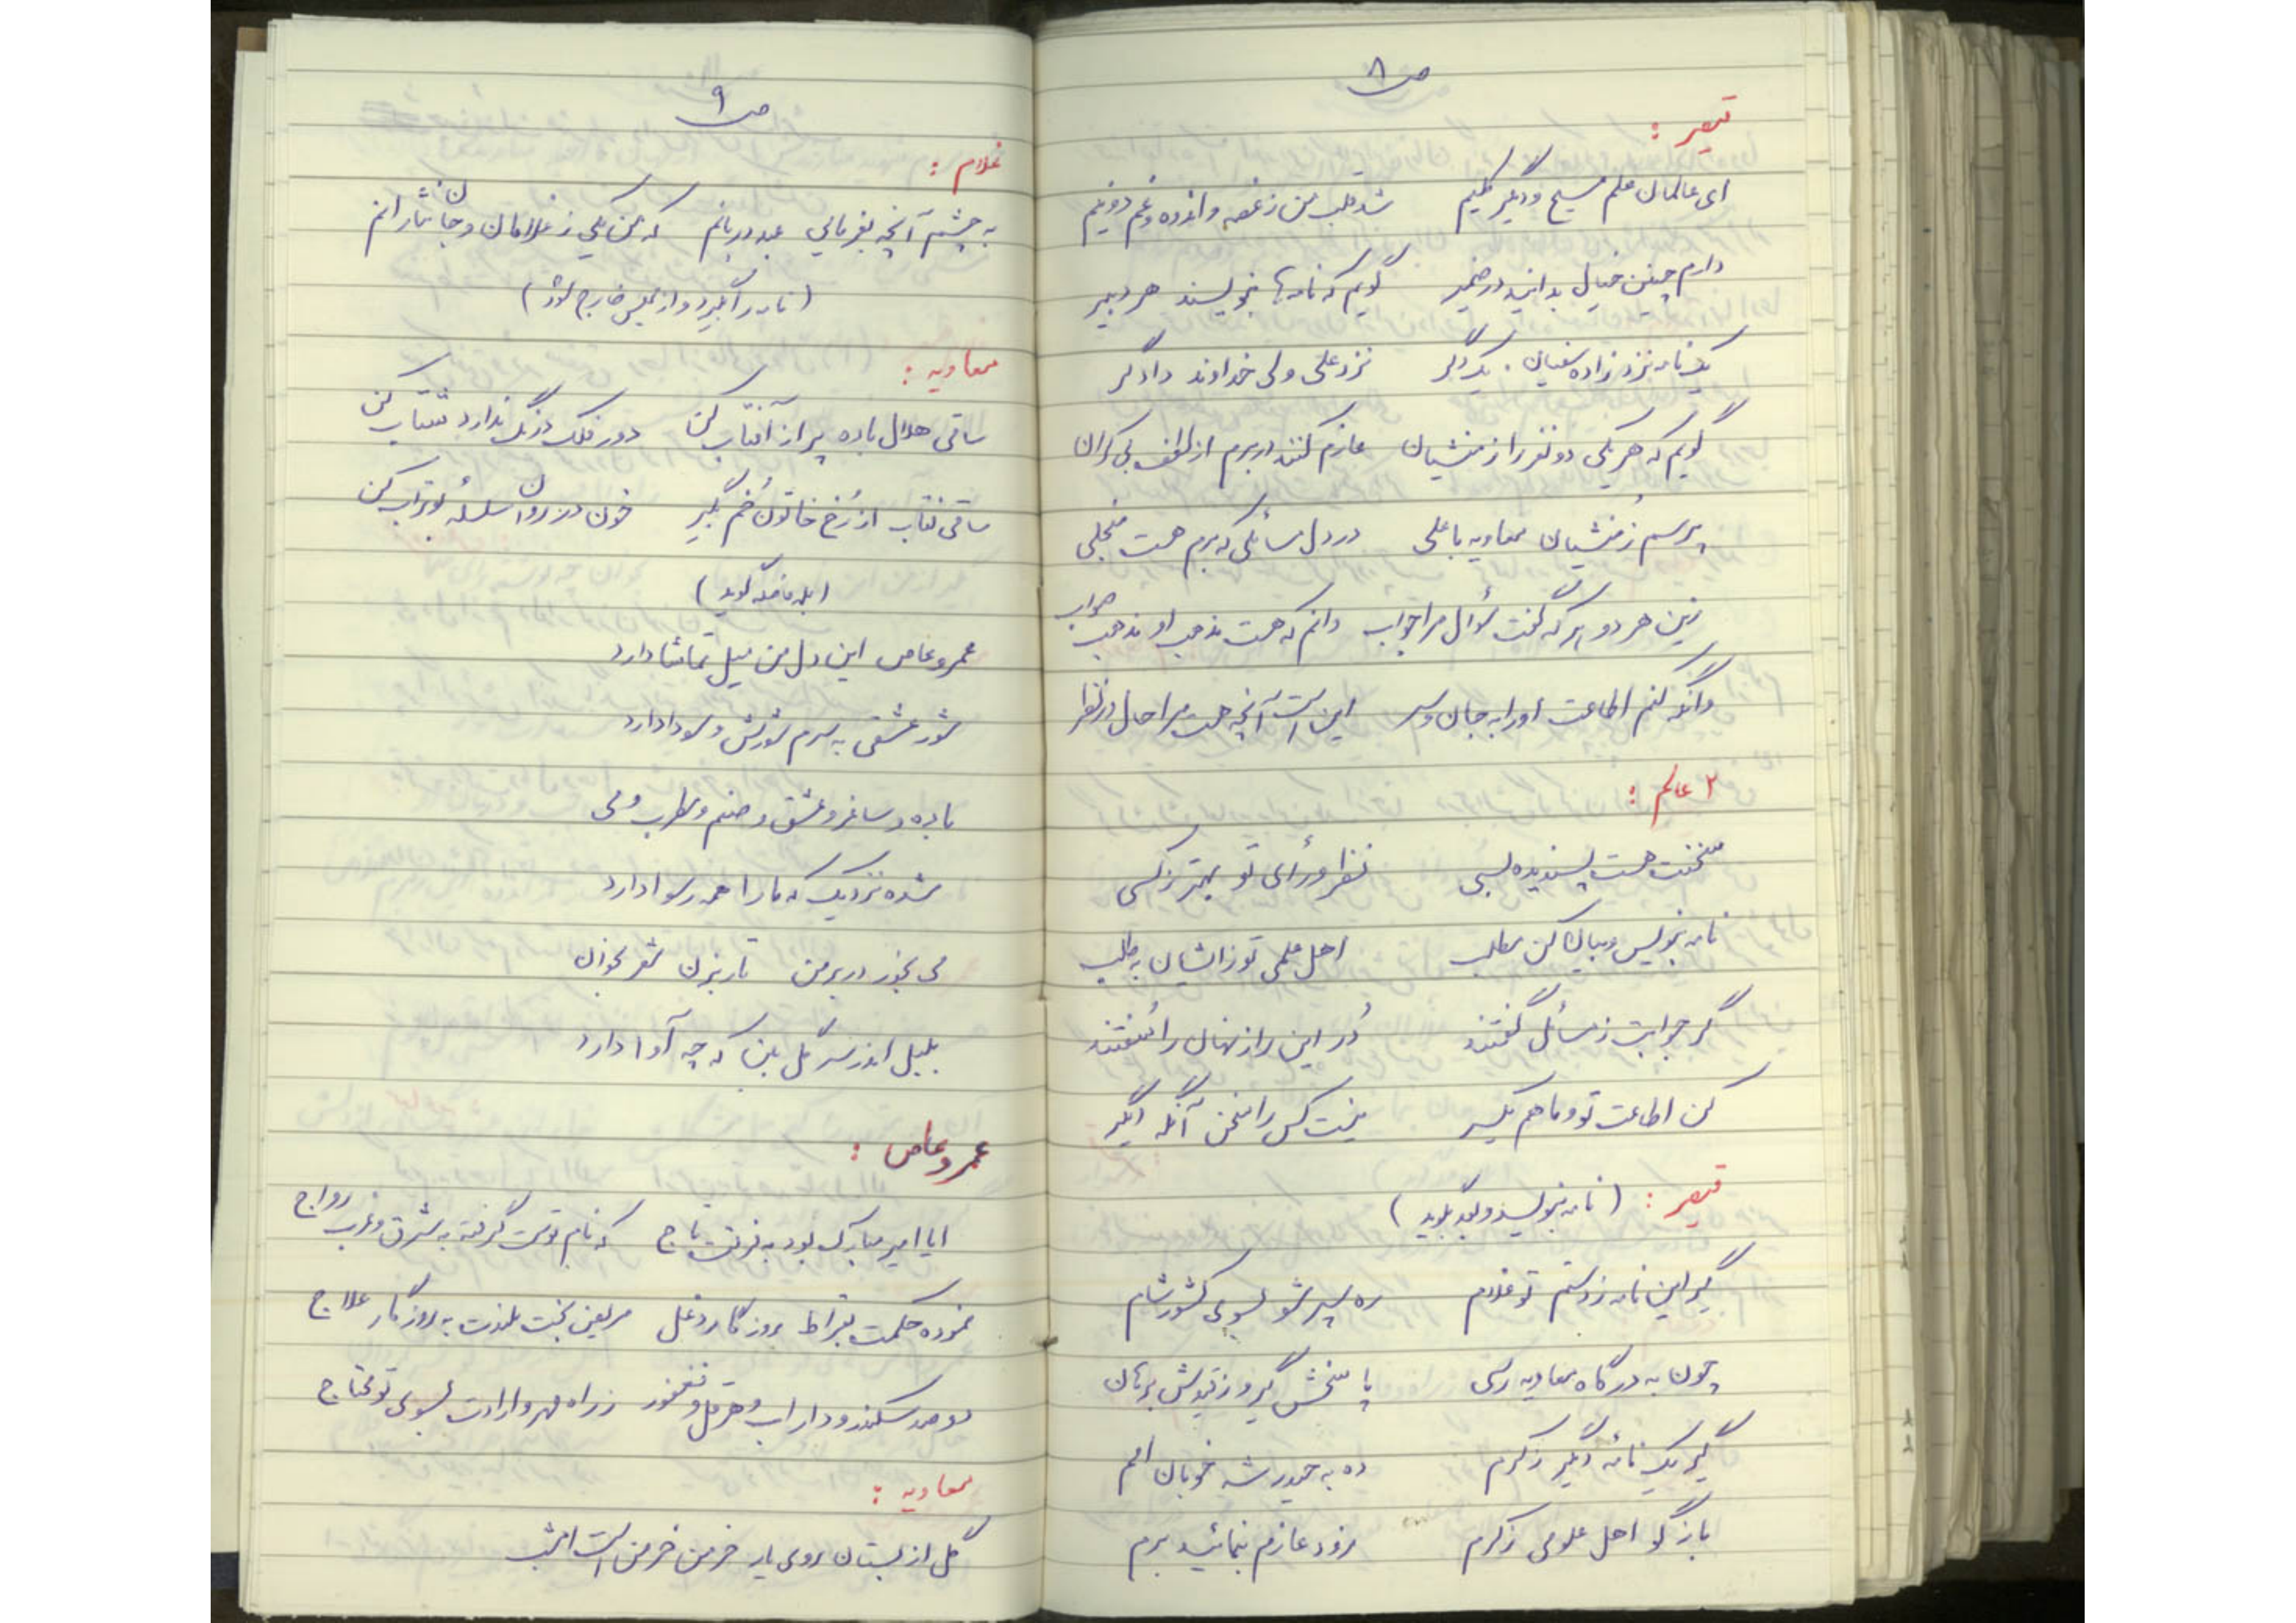 ص ۸
قیصر :
ای عالمان علم مسیح و دیگر کلیم شد قلب من ز غصه و اندوه و غم دو نیم
دارم چنین خیال بدانید در ضمیر گویم که نامه‌ها بنویسند هر دبیر
یک نامه نزد زاده سفیان . یک دگر نزد علی ولی خداوند دادگر
گویم که هر یکی دو نفر را ز منشیان عازم کنند در برم از لطف بی کران
پرسم ز منشیان معاویه یا علی در دل مسائلی که برم هست منجلی
زین هر دو هر که گفت سؤال مرا جواب دانم که هست مذهب او مذهب صواب
وانگه کنم اطاعت او را به جان و سر این است آنچه هست مرا حال در نظر
۲ عالم :
سخنت هست پسندیده بسی نظر و رأی تو بهتر ز کسی
نامه بنویس و بیان کن مطلب اهل علمی تو ز ایشان به طلب
گر جوابت ز مسائل گفتند دُر این راز نهان را سُفتند
کن اطاعت تو و ما هم یکسر نیست کس را سخن آنگه دیگر
قیصر : ( نامه بنویسد و بعد بگوید )
گیر این نامه ز دستم تو غلام ره سپر شو بسوی کشور شام
چون به درگاه معاویه رسی پاسخش گیر و ز قیدش برهان
گیر یک نامه دیگر ز کرم ده به حیدر شه خوبان امم
باز گو اهل علومی ز کرم زود عازم بنمائید برم
ص ۹
غلام :
به چشم آنچه بفرمائی عبد دربانم که من یکی ز غلامان و جان نثارانم
( نامه را بگیرد و از مجلس خارج شود )
معاویه :
ساقی هلال باده پر از آفتاب کن دور فلک درنگ ندارد شتاب کن
ساقی نقاب از رُخ خاتون خُم بگیر خون در روان سلسله بوتراب کن
( بلافاصله گوید )
عمروعاص این دل من میل تماشا دارد
شور عشقی به سرم شورش و سودا دارد
باده و ساغر و عشق و صنم و مطرب و می
شده نزدیک که ما را همه رسوا دارد
می بخور در بر من تار بزن شعر بخوان
بلبل اندر سر گل بین که چه آوا دارد
عمروعاص :
ایا امیر مبارک بود به فرقت تاج که نام توست گرفته به شرق و غرب رواج
نموده حکمت بقراط روزگار دغل مریض بخت بلندت به روزگار علاج
دو صد سکندر و داراب و هرقل و فغفور ز راه مهر و ارادت بسوی تو محتاج
معاویه :
گل از بستان روی یار خرمن خرمن است امشب